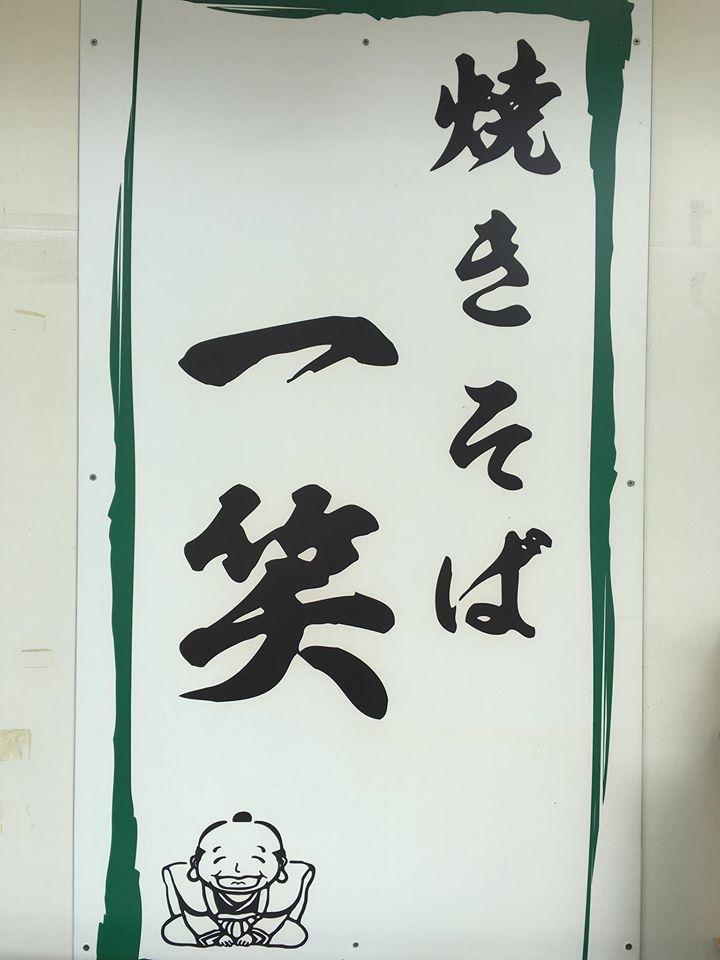 焼きそば
一笑